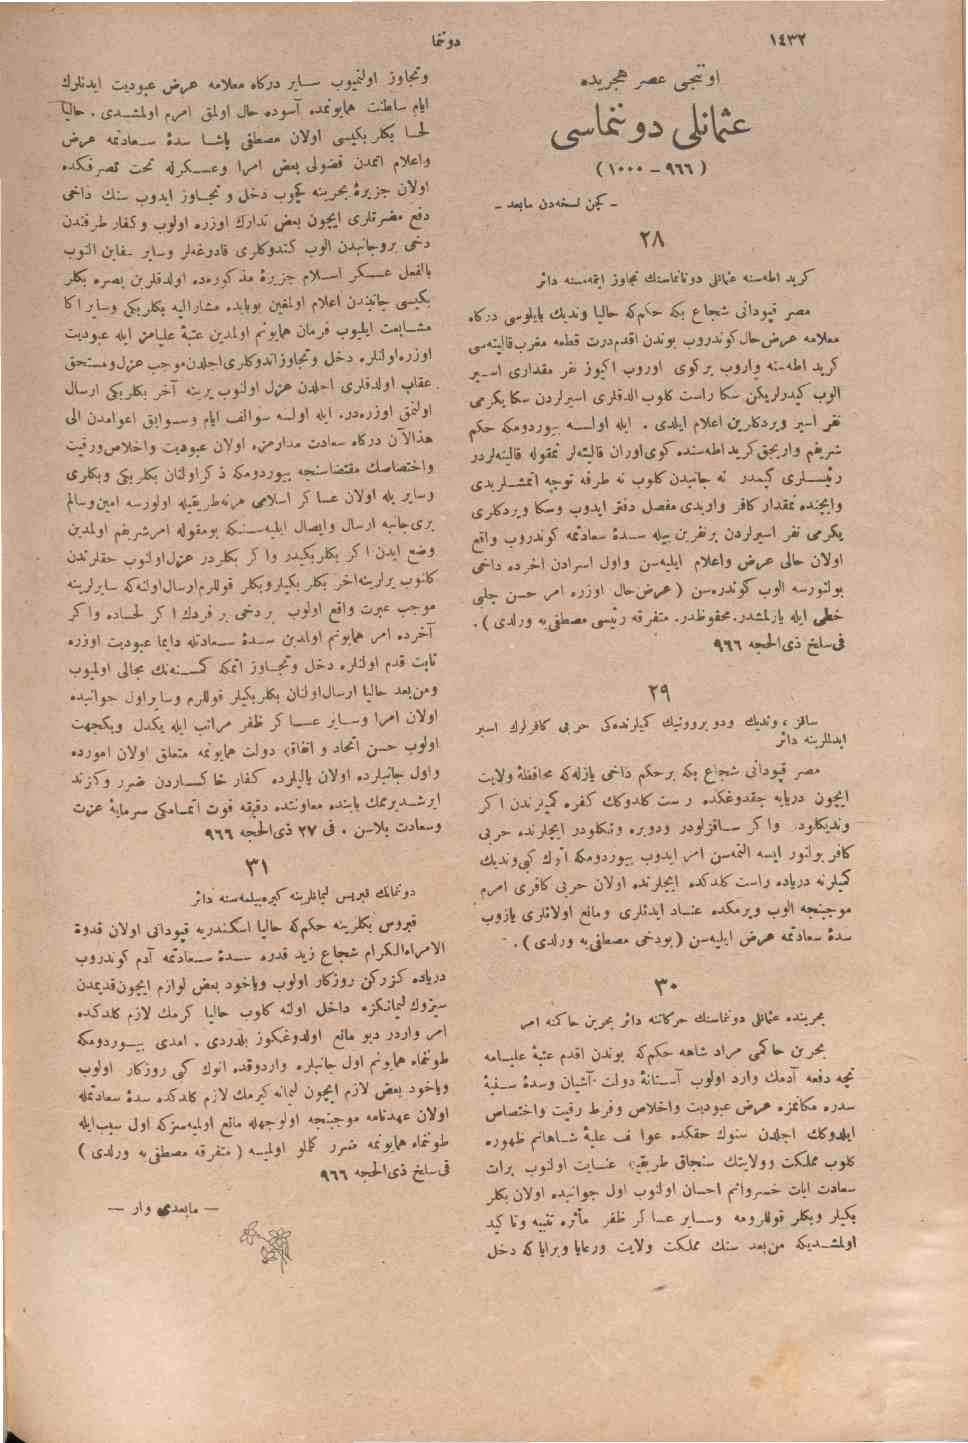 ١٤٣٢
دوننما
اوننجی عصر هجریده
عثمانلی دوننماسی
( ٩٦٦ – ١٠٠٠ )
– كچن نسخه‌دن مابعد –
٢٨
كرید اطه‌سنه عثمانلی دونانماسنك تجاوز ایتمه‌مسنه دائر
مصر قپودانی شجاع بكه حكم كه حالیا وندیك بایلوسی دركاه
معلامه عرض حال كوندروب بوندن اقدم درت قطعه مغرب قالیته‌سی
كرید اطه‌سنه واروب بركوی اوروب اكیوز نفر مقداری اسیر
الوب كیدرلریكن سكا راست كلوب الدقلری اسیرلردن سكا یكرمی
نفر اسیر ویردكلرین اعلام ایلدی . ایله اولسه بیوردومكه حكم
شریفم واریجق كرید اطه‌سنده كوی اوران قالیته‌لر نمقوله قالیته‌لردر
رئیسلری كیمدر نه جانبدن كلوب نه طرفه توجه اتمشلریدی
وایچنده نمقدار كافر واریدی مفصل دفتر ایدوب وسكا ویردكلری
یكرمی نفر اسیرلردن برنفرین بیله سدهٔ سعادتمه كوندروب واقع
اولان حالی عرض واعلام ایلیه‌سن واول اسرادن اخرده داخی
بولنورسه الوب كوندره‌سن ( عرض حال اوزره امر حسن چلبی
خطی ایله یازلمشدر. محفوظدر. متفرقه رئیسی مصطفی‌یه ورلدی ) .
فی سلخ ذی الحجه ٩٦٦
٢٩
ساقز ، وندیك ودوبرووینك كمیلرنده‌كی حربی كافرلرك اسیر
ایدلملرینه دائر
مصر قپودانی شجاع بكه برحكم داخی یازله كه محافظهٔ ولایت
ایچون دریایه چقدوغكده رست كلدوكك كفره كمیلرندن اكر
وندیكلودر واكر ساقزلودر ودوبره ونیكلودر ایچلرنده حربی
كافر بولنور ایسه التمه‌سن امر ایدوب بیوردومكه انوك كبی وندیك
كمیلرنه دریاده راست كلدكده ایچلرنده اولان حربی كافری امرم
موجبنجه الوب ویرمكده عناد ایدنلری ومانع اولانلری یازوب
سدهٔ سعادتمه عرض ایلیه‌سن ( بودخی مصطفی‌یه ورلدی ) .
٣٠
بحرینده عثمانلی دونماسنك حركاتنه دائر بحرین حاكنه امر
بحرین حاكمی مراد شاهه حكم كه بوندن اقدم عتبهٔ علیامه
نچه دفعه آدمك وارد اولوب آستانهٔ دولت آشیان وسدهٔ سنیهٔ
سدره مكانمزه عرض عبودیت واخلاص وفرط رقیت واختصاص
ایلدوكك اجلدن سنوك حقكده عواطف علیهٔ شاهانم ظهوره
كلوب مملكت وولایتك سنجاق طریقیله عنایت اولنوب برات
سعادت ایات خسروانم احسان اولنوب اول جوانبده اولان بكلر
بكیلر وبكلر قوللرومه وسایر عساكر ظفر مأثره تنبیه وتاكید
اولمشدیكه من بعد سنك مملكت ولایت ورعایا وبرایاكه دخل
وتجاوز اولنمیوب سایر دركاه معلامه عرض عبودیت ایدنلرك
ایام سلطنت همایونمده آسوده حال اولمق امرم اولمشدی . حالیا
لحسا بكلربكیسی اولان مصطفی پاشا سدهٔ سعادتمه عرض
واعلام اتمدن فضولی بعض امرا وعسكرله تحت تصرفكده
اولان جزیرهٔ بحرینه كچوب دخل و تجاوز ایدوب سنك داخی
دفع مضرتلری ایچون بعض تدارك اوزره اولوب وكفار طرفندن
دخی بروجانبدن الوب كندوكلری قادرغه‌لر وسایر سفاین النوب
بالفعل عسكر اسلام جزیرهٔ مذكوره‌ده اولدقلرین بصره بكلر
بكیسی جانبندن اعلام اولمغین بوبابده مشارالیه بكلربكی وسایر اكا
مشایعت ایلیوب فرمان همایونم اولمدین عتبهٔ علیامز ایله عبودیت
اوزره اولنلره دخل وتجاوز اندوكلری اجلدن موجب عزل ومستحق
عقاب اولدقلری اجلدن عزل اولنوب یرینه آخر بكلربكی ارسال
اولنمق اوزره‌در. ایله اولسه سوالف ایام وسوابق اعوامدن الی
هذا الآن دركاه سعادت مدارمزه اولان عبودیت واخلاص ورقیت
واختصاصك مقتضاسنجه بیوردومكه ذكر اولنان بكلربكی وبكلری
وسایر بله اولان عساكر اسلامی هرنه طریقیله اولورسه امین وسالم
بری جانبه ارسال وایصال ایلیه‌سنكه بومقوله امر شریفم اولمدین
وضع ایدن اكر بكلربكیدر واكر بكلردر عزل اولنوب حقلرندن
كلنوب یرلرینه آخر بكلر بكیلر وبكلر قوللرم ارسال اولنه كه سایرلرینه
موجب عبرت واقع اولوب بردخی بر فردك اكر لحساده واكر
آخرده امر همایونم اولمدین سدهٔ سعادتله دایما عبودیت اوزره
ثابت قدم اولنلره دخل وتجاوز اتمكه كمسنه‌نك مجالی اولمیوب
ومن بعد حالیا ارسال اولنان بكلربكیلر قوللرم وسایر اول جوانبده
اولان امرا وسایر عساكر ظفر مراتب ایله یكدل ویكجهت
اولوب حسن اتحاد و اتفاقله دولت همایونمه متعلق اولان امورده
واول جانبلرده اولان یالیلرده كفار خاكساردن ضرر وكزند
ایرشدیرممك بابنده معاونتده دقیقه فوت اتمامكی سرمایهٔ عزت
وسعادت بلاسن . فی ٢٧ ذی الحجه ٩٦٦
٣١
دونمانك قبریس لیمانلرینه كیره‌بیلمه‌سنه دائر
قبروس بكلرینه حكم كه حالیا اسكندریه قپودانی اولان قدوة
الامراء الكرام شجاع زید قدره سدهٔ سعادتمه آدم كوندروب
دریاده كزركن روزكار اولوب ویاخود بعض لوازم ایچون قدیمدن
سیزوك لیمانكزه داخل اولنه كلوب حالیا كرمك لازم كلدكده
امر واردر دیو مانع اولدوغكوز بلدردی . امدی بیوردومكه
طونمماء همایونم اول جانبلره واردوقده انوك كبی روزكار اولوب
ویاخود بعض لازم ایچون لیمانه كیرمك لازم كلدكده سدهٔ سعادتمله
اولان عهدنامه موجبنجه اولوجهله مانع اولمیه‌سزكه اول سبب ایله
طونمماء همایونمه ضرر كللو اولمیه ( متفرقه مصطفی‌یه ورلدی )
فی سلخ ذی الحجه ٩٦٦
— مابعدی وار —